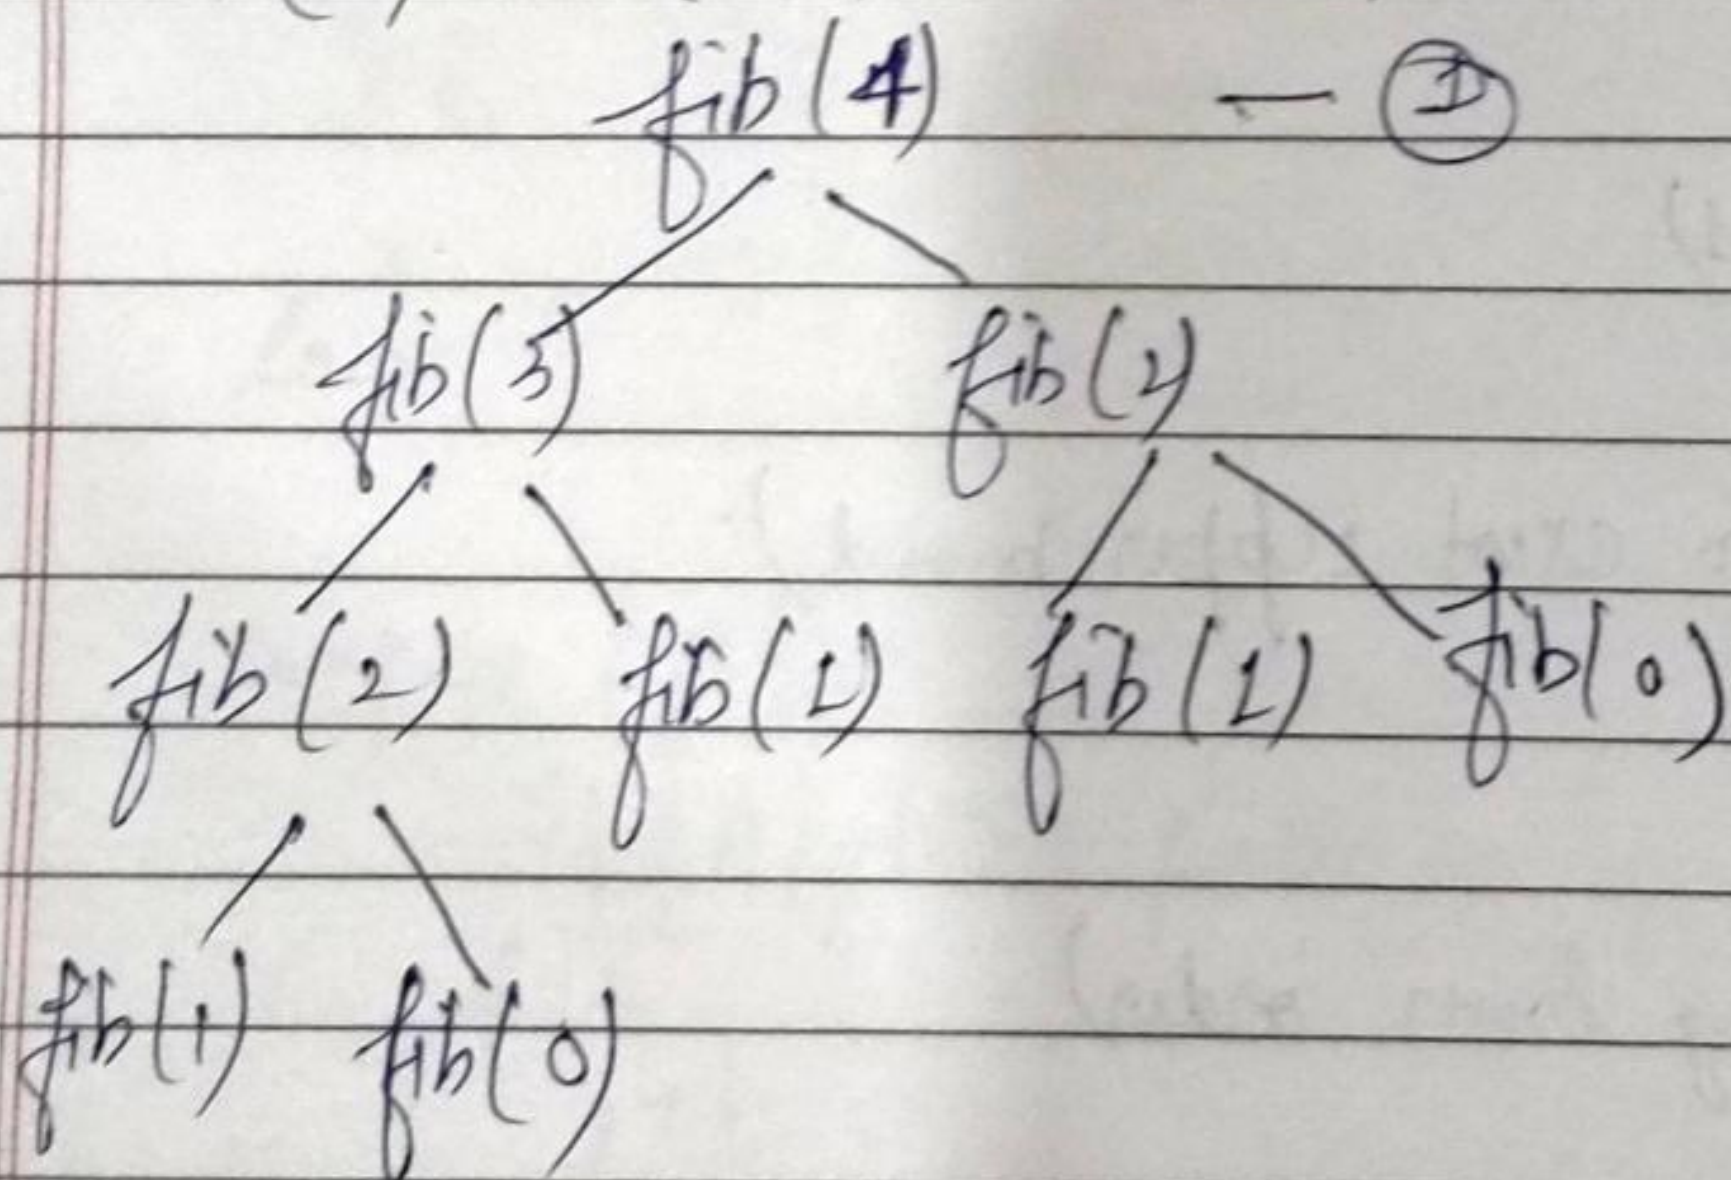 fib(4) — ①
fib(3) fib(2)
fib(2) fib(1) fib(1) fib(0)
fib(1) fib(0)